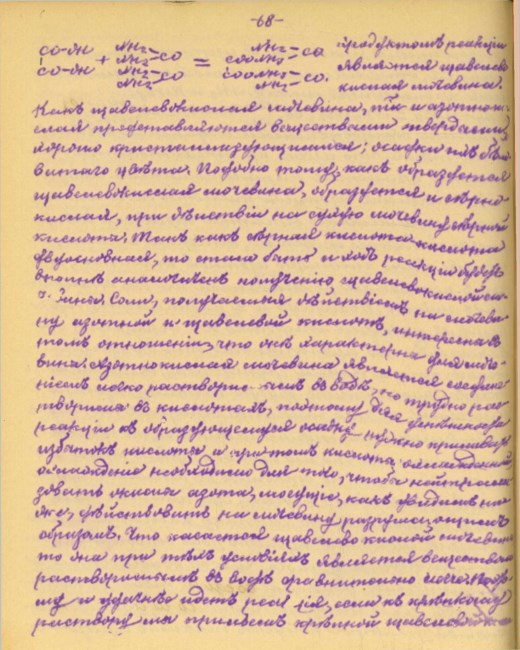 -68-
CO-OH + NH2 NH2 =CO = NH2 COONH3 =CO продуктомъ реакціи
CO-OH NH2 NH2 =CO COONH3 NH2 =CO. является щавелево
кислая мочевина.
Какъ щавелевокислая мочевина, такъ и азотно-
кислая представляются веществами твердыми,
хорошо кристаллизующимися; осадки ихъ бѣло-
ватаго цвѣта. Подобно тому, какъ образуется
щавелевокислая мочевина, образуется и сѣрно-
кислая, при дѣйствіи на сухую мочевину сѣрной
кислоты. Такъ какъ сѣрная кислота кислота
двуосновная, то стало быть и ходъ реакціи будетъ
вполнѣ аналогиченъ полученію щавелевокислой
Соли, получаемыя дѣйствіемъ на мочеви-
ну азотной и щавелевой кислотъ, интересны въ
томъ отношеніи, что онѣ характерны для моче-
вины. Азотнокислая мочевина является соедине-
ніемъ легко растворимымъ въ водѣ, но трудно рас-
творима въ кислотахъ, поэтому для
реакціи къ образующемуся осадку нужно прибавить
избытокъ кислоты и притомъ кислоты охлажденной,
охлажденіе необходимо для того, чтобы нейтрали-
зовать окислы азота, могущіе, какъ увидимъ ни-
же, дѣйствовать на мочевину разрушающимъ
образомъ. Что касается щавелево кислой мочевины,
то она при тѣхъ условіяхъ является веществомъ
растворимымъ въ водѣ сравнительно
му и удачнѣе идетъ реакція, если къ крѣпкому
раствору мы прибавимъ крѣпкой щавелевой